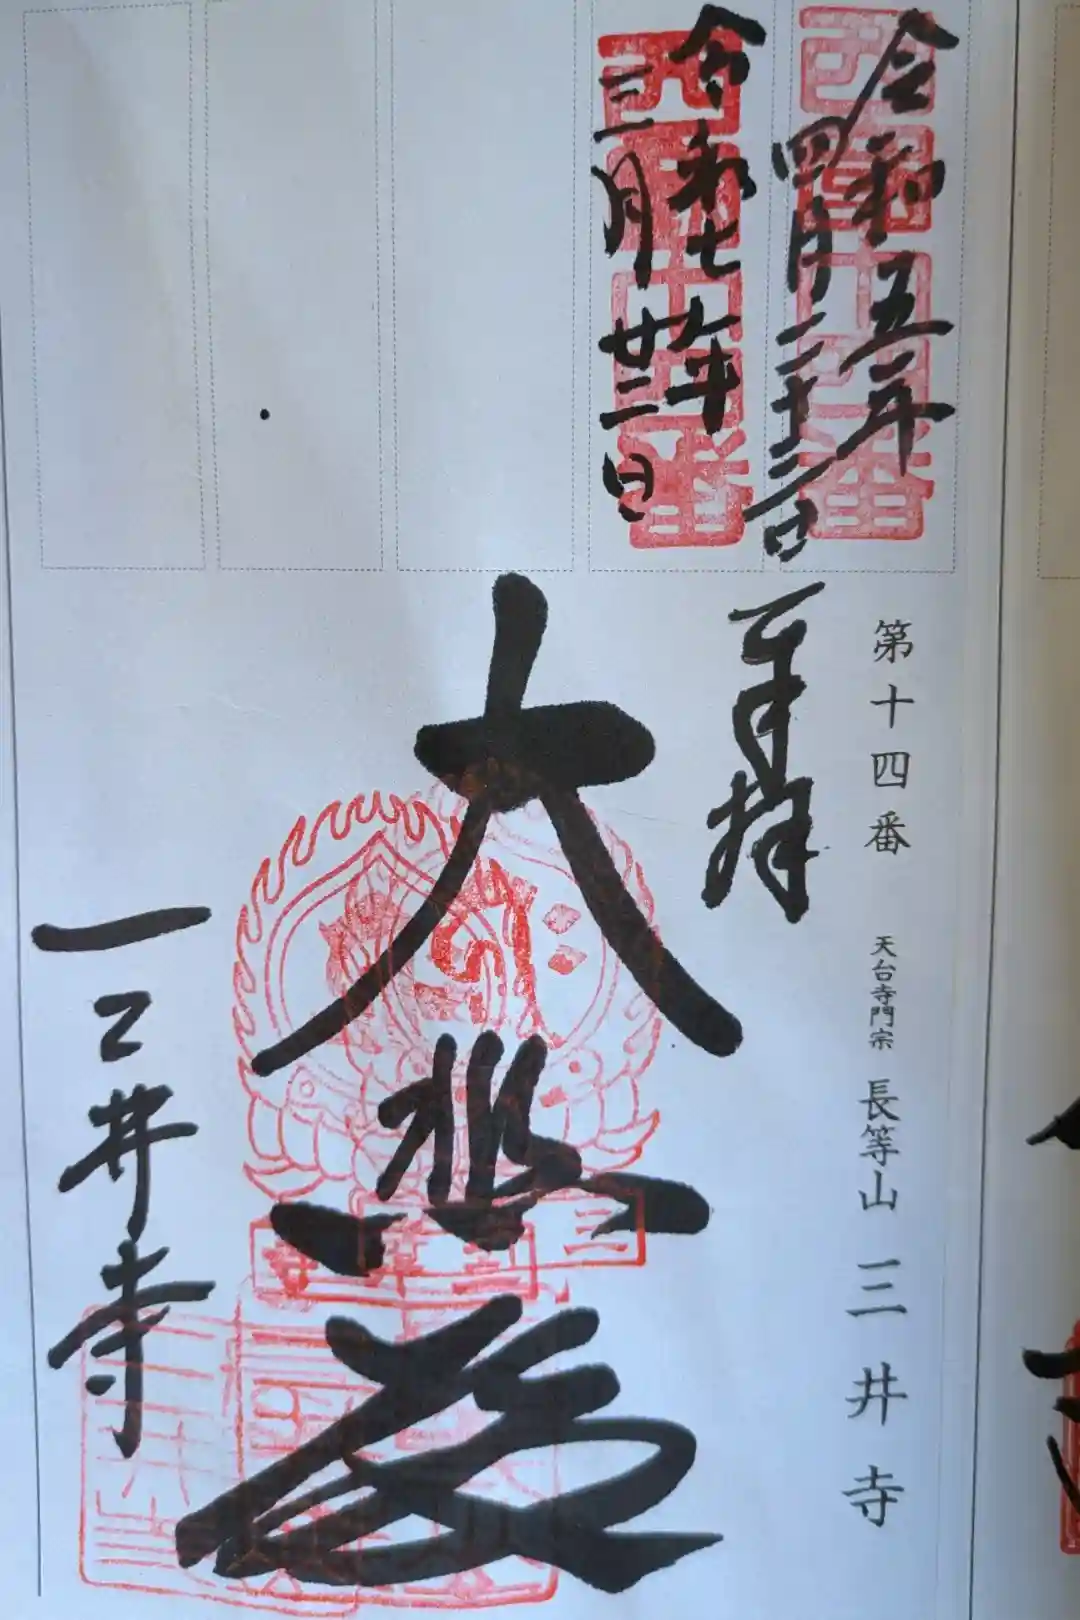 第十四番 天台寺門宗 長等山 三井寺
西國十四番
令和五年
四月二十二日
西國十四番
令和七年
三月廿二日
奉拝
大悲殿
三井寺